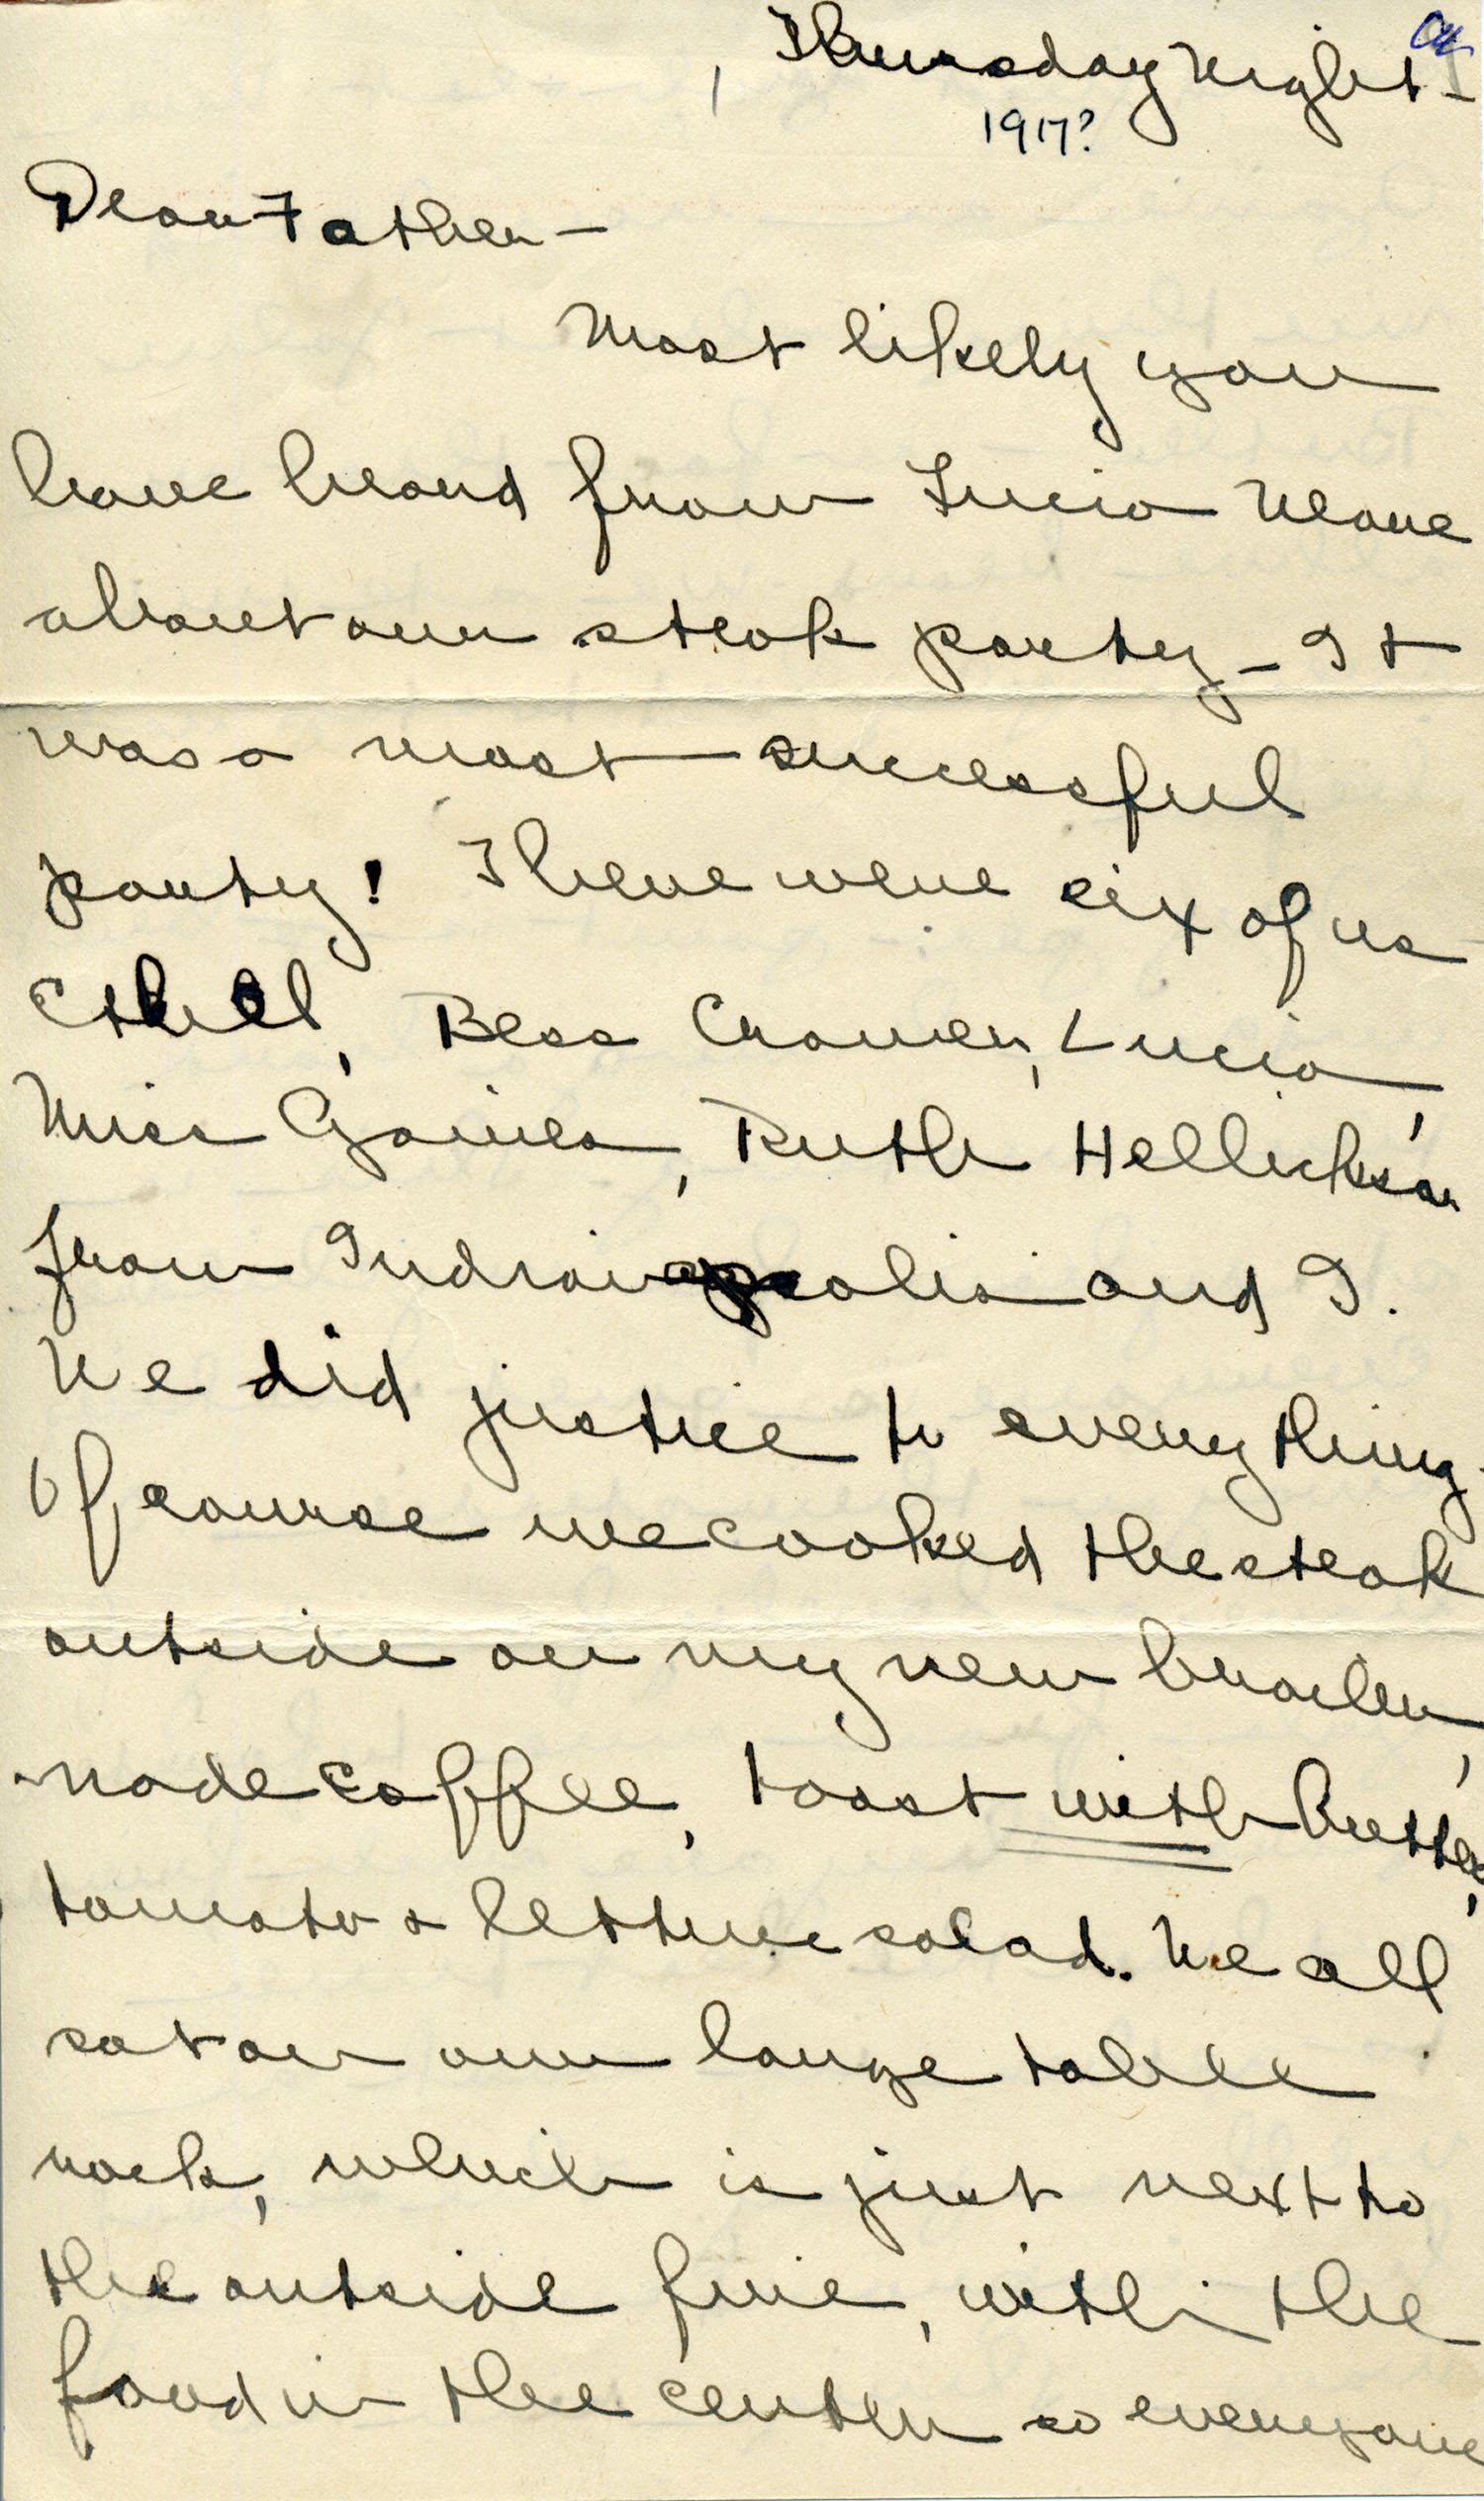 Thursday Night-
1917?
Dear Father-
Most likely you
have heard from Lucia
about our steak party - It
was a most successful
party! There were six of us
Ethel, Bess Cramer, Lucia,
Miss Gaines, Ruth Hellickson
from Indianapolis and I.
We did justice to everything.
Of course we cooked the steak
outside on my new broiler,
made coffee, toast with butter,
tomato & lettuce salad. We all
sat on our large table
rock, which is just next to
the outside fire, with the
food in the center so everyone